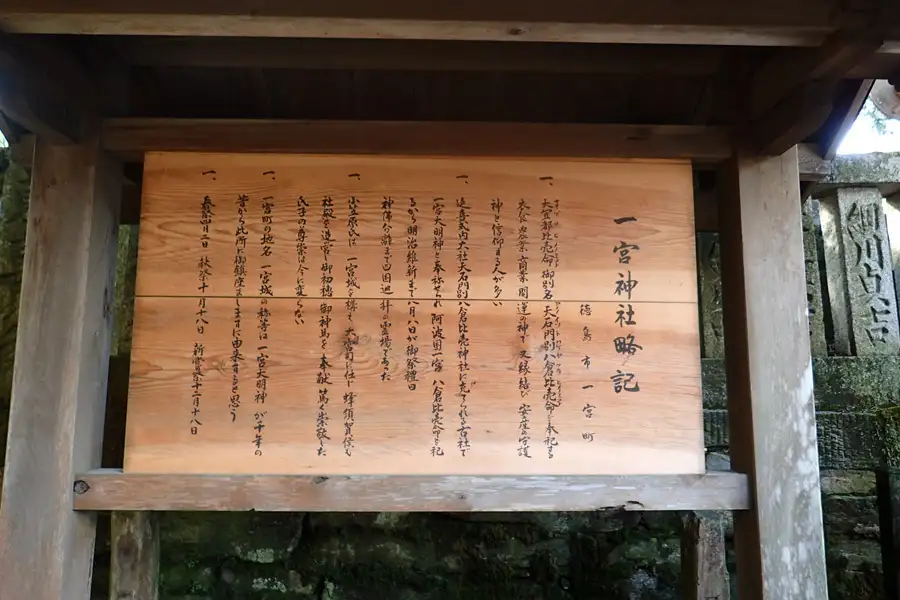 一宮神社略記
徳島市一宮町
一、大宜都比売命 御別名 天石門別八倉比売命を奉祀する
衣食農業商業開運の神で 又縁結び 安産の守護
神と信仰する人が多い
一、延喜式内大社天石門別八倉比売神社に充てられる古社で
一宮大明神と奉称せられ 阿波国一宮 八倉比売命を祀
るから明治維新まで八月八日が御祭禮日
神佛分離まで四国巡拝の霊場であった
一、小笠原氏は 一宮城を構え 大宮司に任じ 蜂須賀侯も
社殿を造営し御初穂 御神馬を奉献 篤く崇敬した
氏子の尊崇は今に変らない
一、一宮町の地名 一宮城の称等は 一宮大明神 が千年の
昔から此所に御鎮座まします に由来すると思う
一、春祭四月二日 秋祭十月十八日 新嘗祭十二月十八日
細川